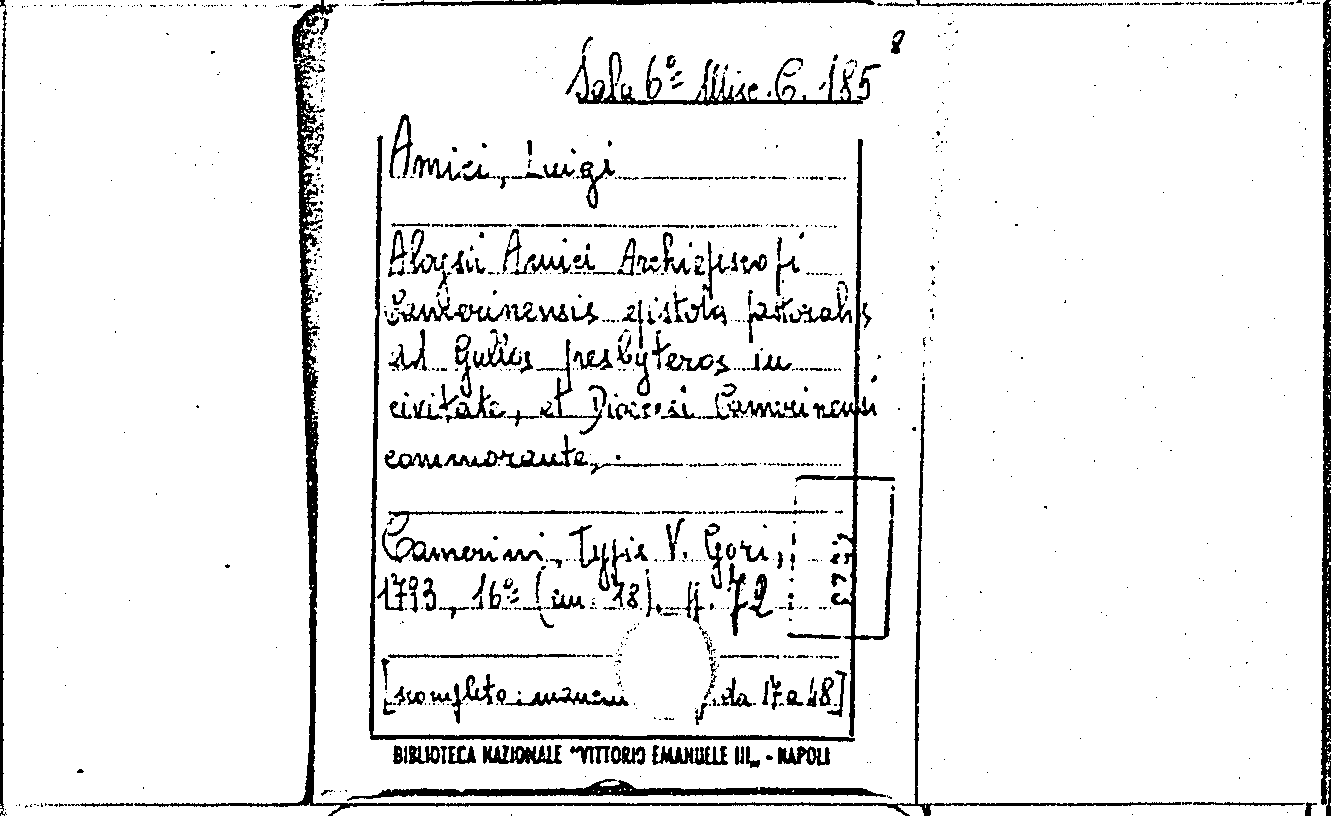 8
Sala 6ª Misc. C. 185
Amici, Luigi
Aloysii Amici Archiepiscopi
Camerinensis epistola pastoralis
ad Gallos presbyteros in
civitate, et Diocesi Camerinensi
commorantes.
Camerini, typis V. Gori,
1793, 16º (cm. 18). p. 72
[scompleto: manca da 17 a 48]
BIBLIOTECA NAZIONALE "VITTORIO EMANUELE III„ - NAPOLI